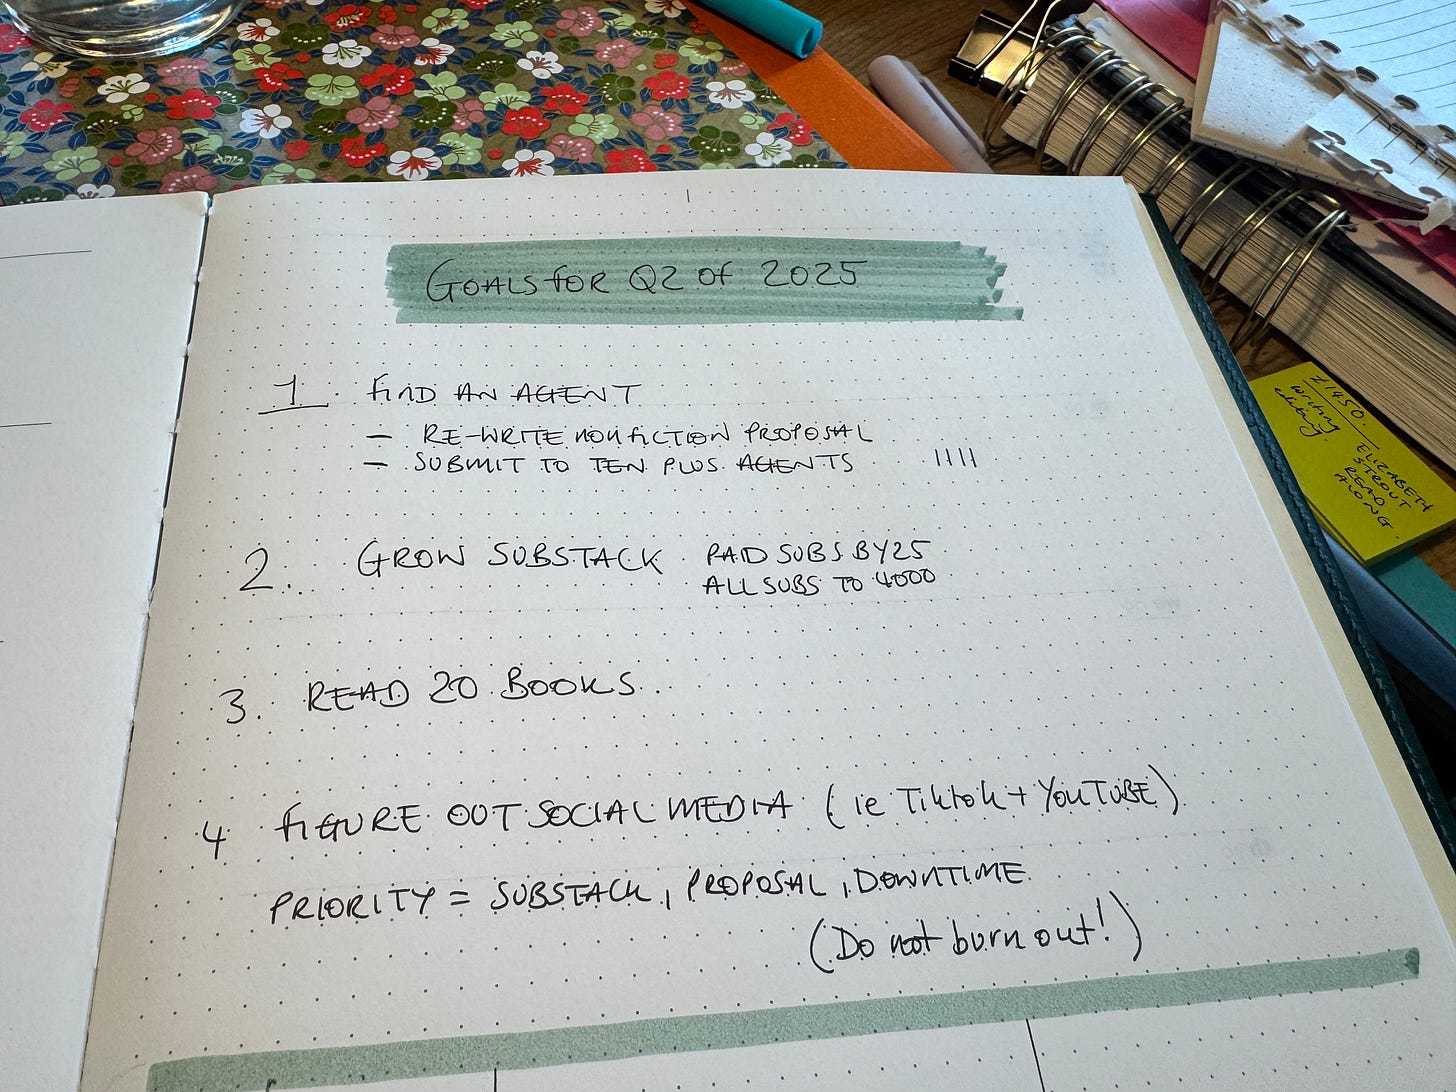 GOALS FOR Q2 OF 2025
1. FIND AN AGENT
– RE-WRITE NONFICTION PROPOSAL
– SUBMIT TO TEN PLUS AGENTS IIII
2. GROW SUBSTACK PAID SUBS BY 25
ALL SUBS TO 4000
3. READ 20 BOOKS
4 FIGURE OUT SOCIAL MEDIA (ie Tiktok + YOUTUBE)
PRIORITY = SUBSTACK, PROPOSAL, DOWNTIME
(Do not burn out!)
£1450.
writing
ELIZABETH
STROUT
READ
ALONG